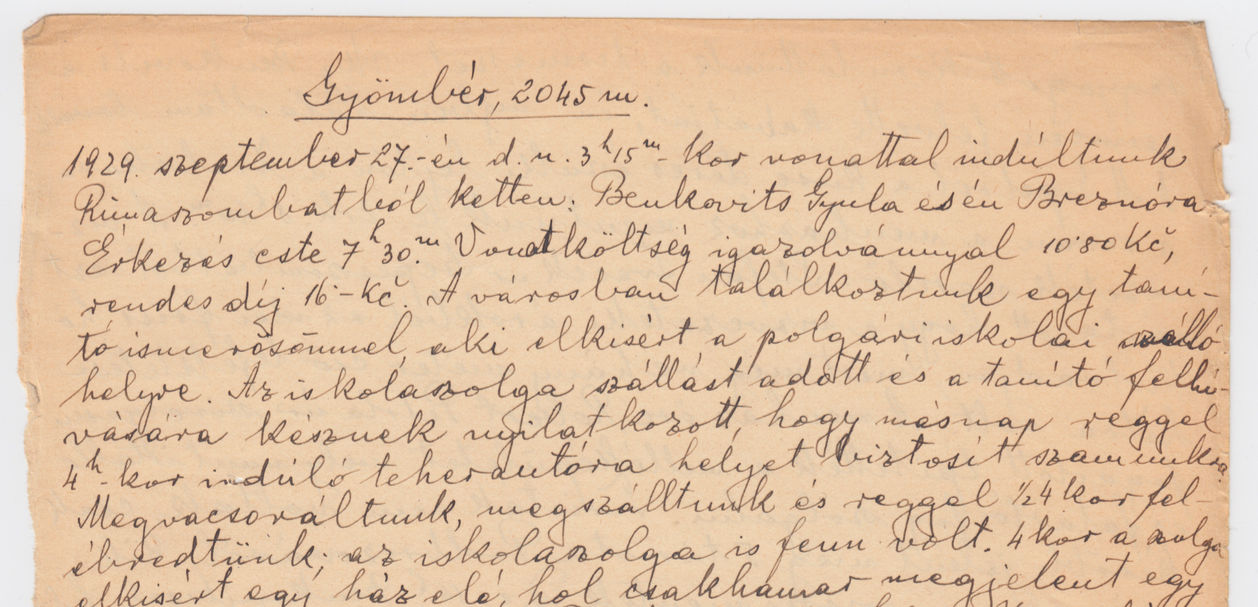 Gyömbér, 2045 m.
1929. szeptember 27.-én d. u. 3ʰ15ᵐ-kor vonattal indúltunk
Rimaszombatból ketten: Benkovits Gyula és én Breznóra
Érkezés este 7ʰ 30ᵐ. Vonatköltség igazolvánnyal 10·80 Kč,
rendes díj 16-Kč. A városban találkoztunk egy taní-
tó ismerősömmel, aki elkisért a polgári iskolai szálló
helyre. Az iskolaszolga szállást adott és a tanító felhí-
vására késznek nyilatkozott, hogy másnap reggel
4ʰ-kor indúló teherautóra helyet biztosít számunkra.
Megvacsoráltunk, megszálltunk és reggel ½4 kor fel-
ébredtünk; az iskolaszolga is fenn volt. 4 kor a szolga
elkisért egy ház elé, hol csakhamar megjelent egy